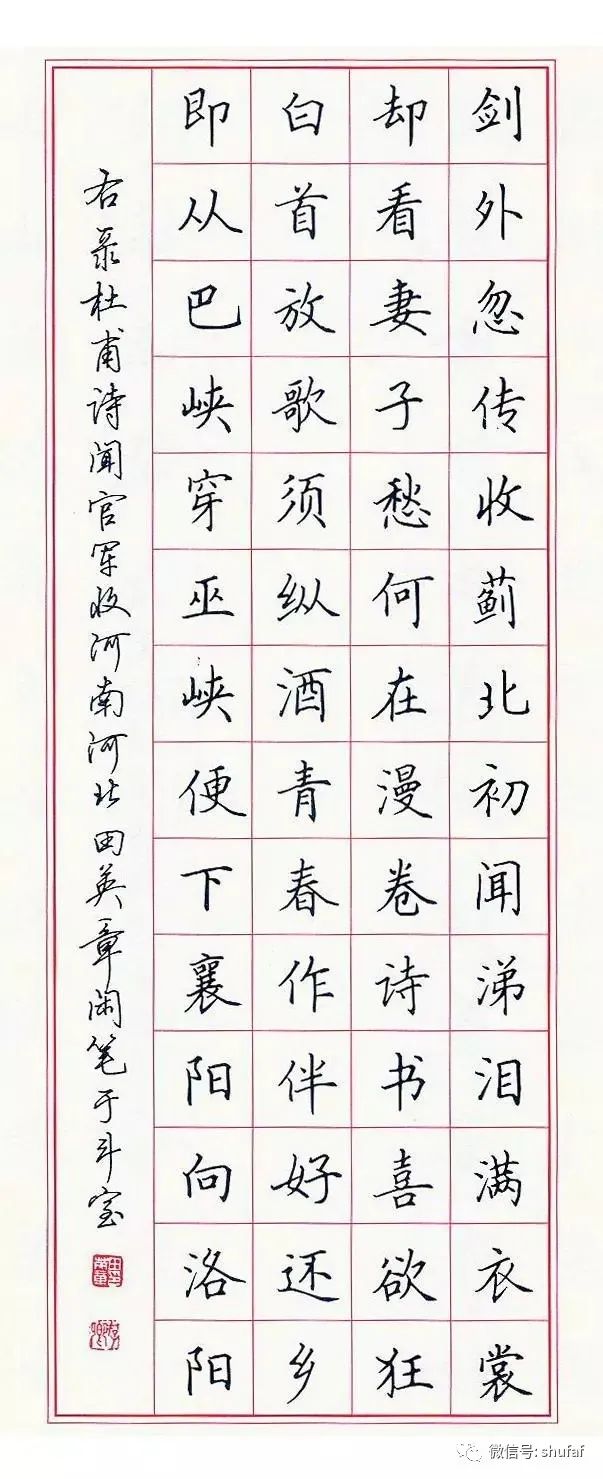 剑外忽传收蓟北初闻涕泪满衣裳
却看妻子愁何在漫卷诗书喜欲狂
白首放歌须纵酒青春作伴好还乡
即从巴峡穿巫峡便下襄阳向洛阳
右录杜甫诗闻官军收河南河北田英章闲笔于斗室
田英章
微信号: shufaf